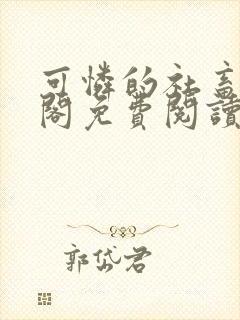 可憐的社畜
閣免費閱讀
郭岱君